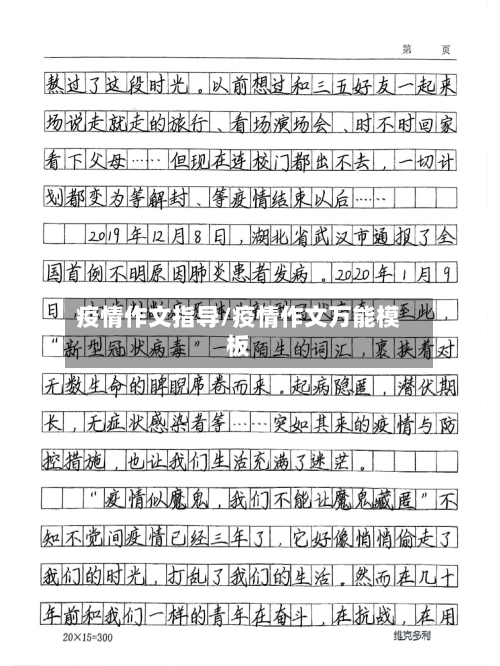 第 页
熬过了这段时光。以前想过和三五好友一起来
场说走就走的旅行、看场演场会、时不时回家
看下父母……但现在连校门都出不去,一切计
划都变为等解封、等疫情结束以后……
2019年12月8日,湖北省武汉市通报了全
国首例不明原因肺炎患者发病。2020年1月9
日
至此,
疫情作文指导/疫情作文万能模
板
“新型冠状病毒”一
陌生的词汇,裹挟着对
无数生命的睥睨席卷而来。起病隐匿,潜伏期
长,无症状感染者等……突如其来的疫情与防
控措施,也让我们生活充满了迷茫。
“疫情似魔鬼,我们不能让魔鬼藏匿”不
知不觉间疫情已经三年了,它好像悄悄偷走了
我们的时光,打乱了我们的生活。然而在几十
年前和我们一样的青年在奋斗,在抗战,在用
20×15=300 维克多利